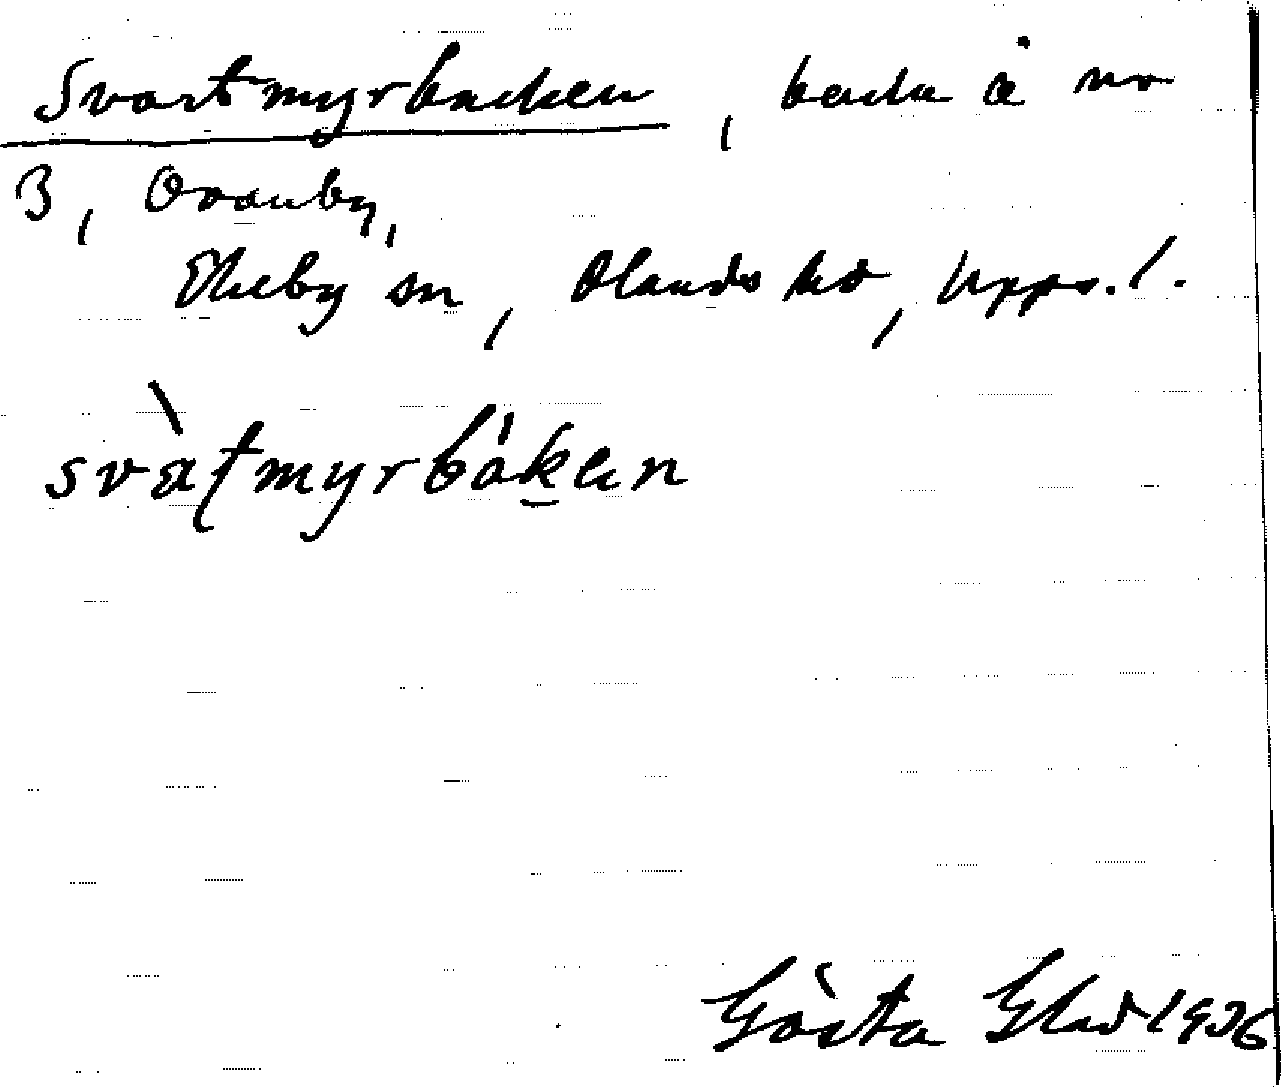 Svartmyrbacken, backe å no
3, Ovanby,
Ekeby sn, Olands hd, Upps. l.
svàtmyrbáken
Gösta Glad 1936